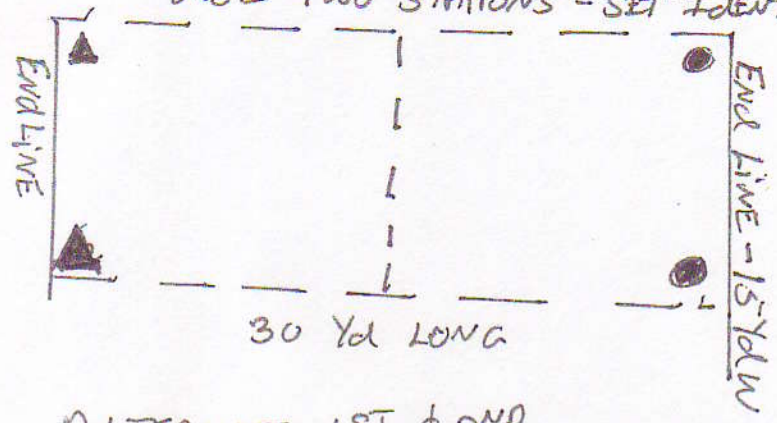 TWO STATIONS - SET IDEN
End LiNE
End LiNE - 15 Yd W
30 Yd LONG
1ST & 2ND